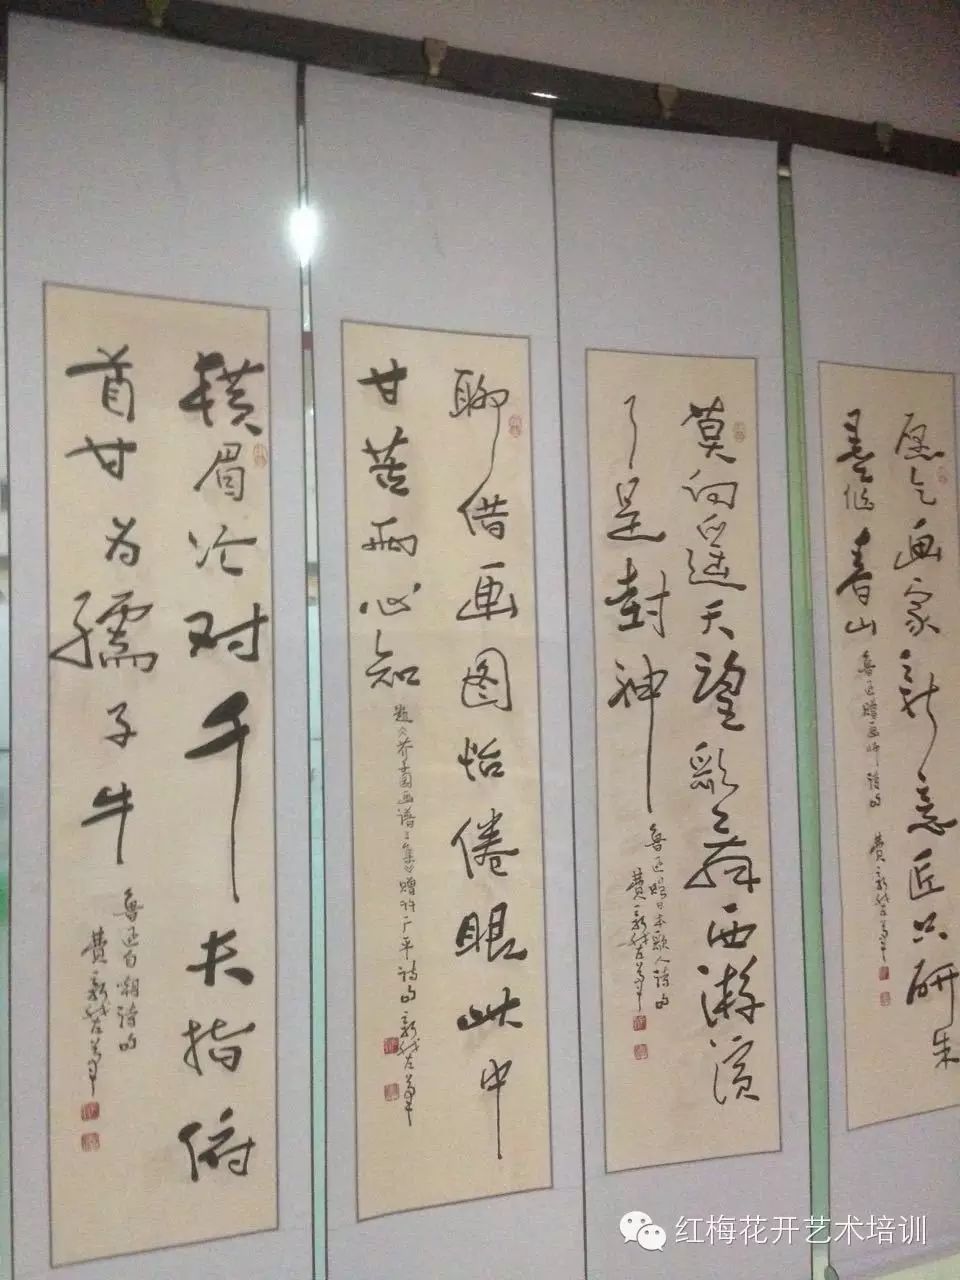 横眉冷对千夫指俯
首甘为孺子牛
鲁迅自嘲诗句
费新我左笔
聊借画图怡倦眼此中
甘苦两心知
题《芥子园画谱三集》赠许广平诗句新我左笔
莫向遥天望歌舞西游演
了是封神
鲁迅赠日本歌人诗句
费新我左笔
愿乞画家新意匠只研朱
墨作春山
鲁迅赠画师诗句
费新我左笔
红梅花开艺术培训